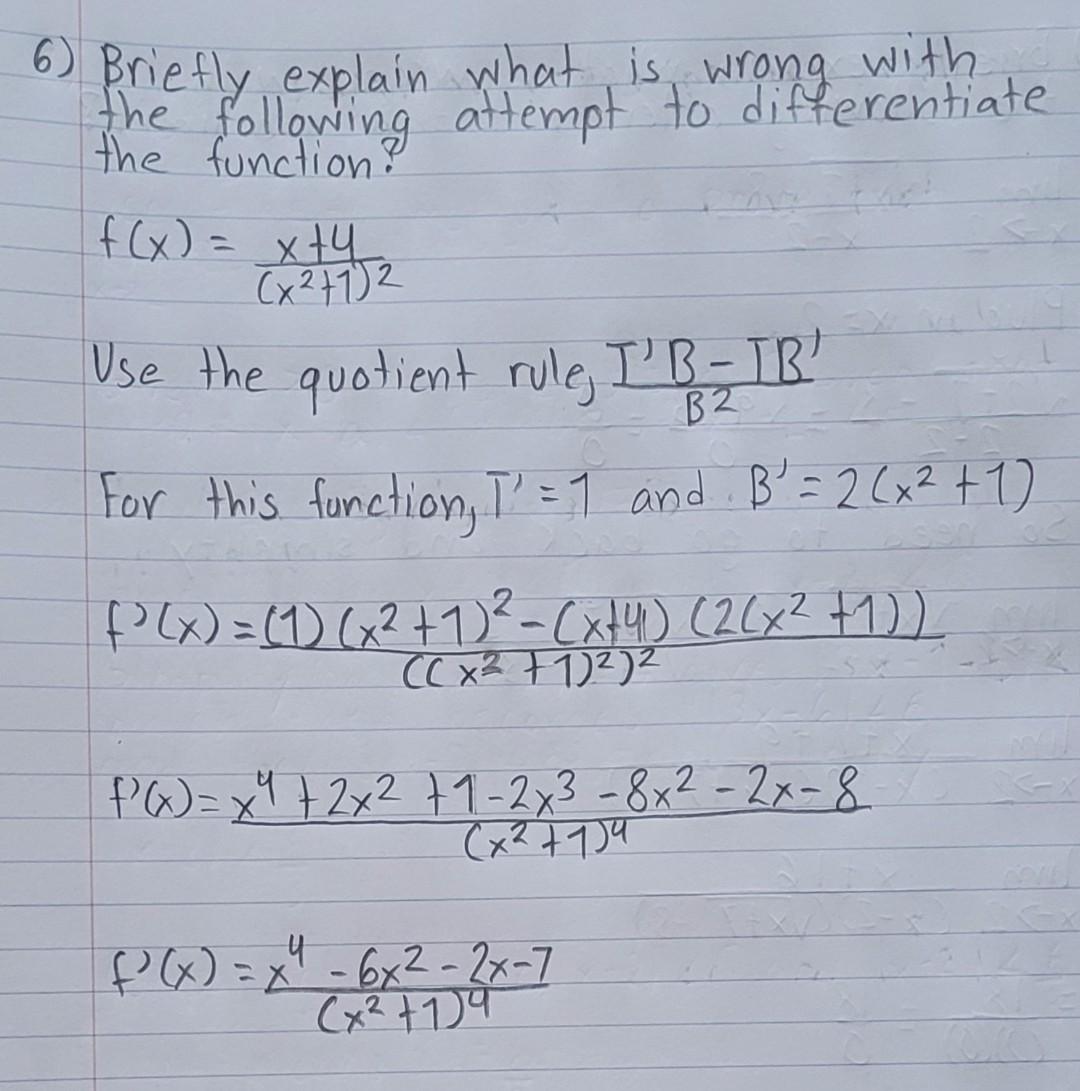 6) Briefly explain what is wrong with
the following attempt to differentiate
the function?
f(x) = x+4
(x²+1)²
Use the quotient rule, T'B - TB'
B²
For this function, T' = 1 and B' = 2(x² + 1)
f'(x) = (1)(x² + 1)² - (x+4)(2(x² + 1))
((x² + 1)²)²
f'(x) = x⁴ + 2x² + 1 - 2x³ - 8x² - 2x - 8
(x² + 1)⁴
f'(x) = x⁴ - 6x² - 2x - 7
(x² + 1)⁴